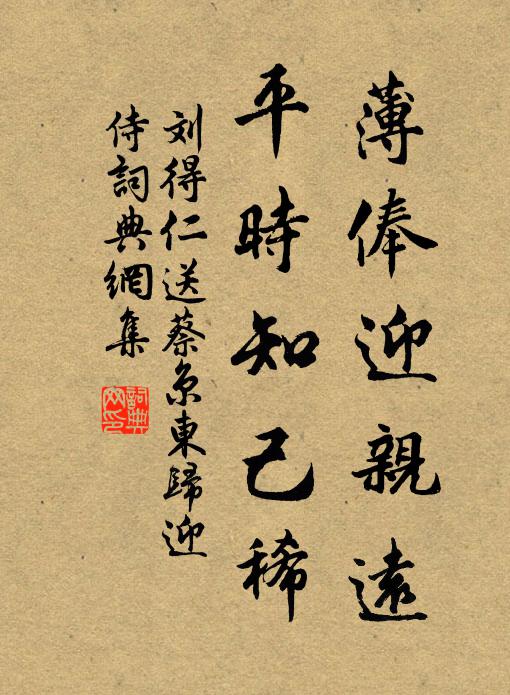 薄俸迎親遠
平時知己稀
刘得仁送蔡京東歸迎
侍詞典網集
詞典网印